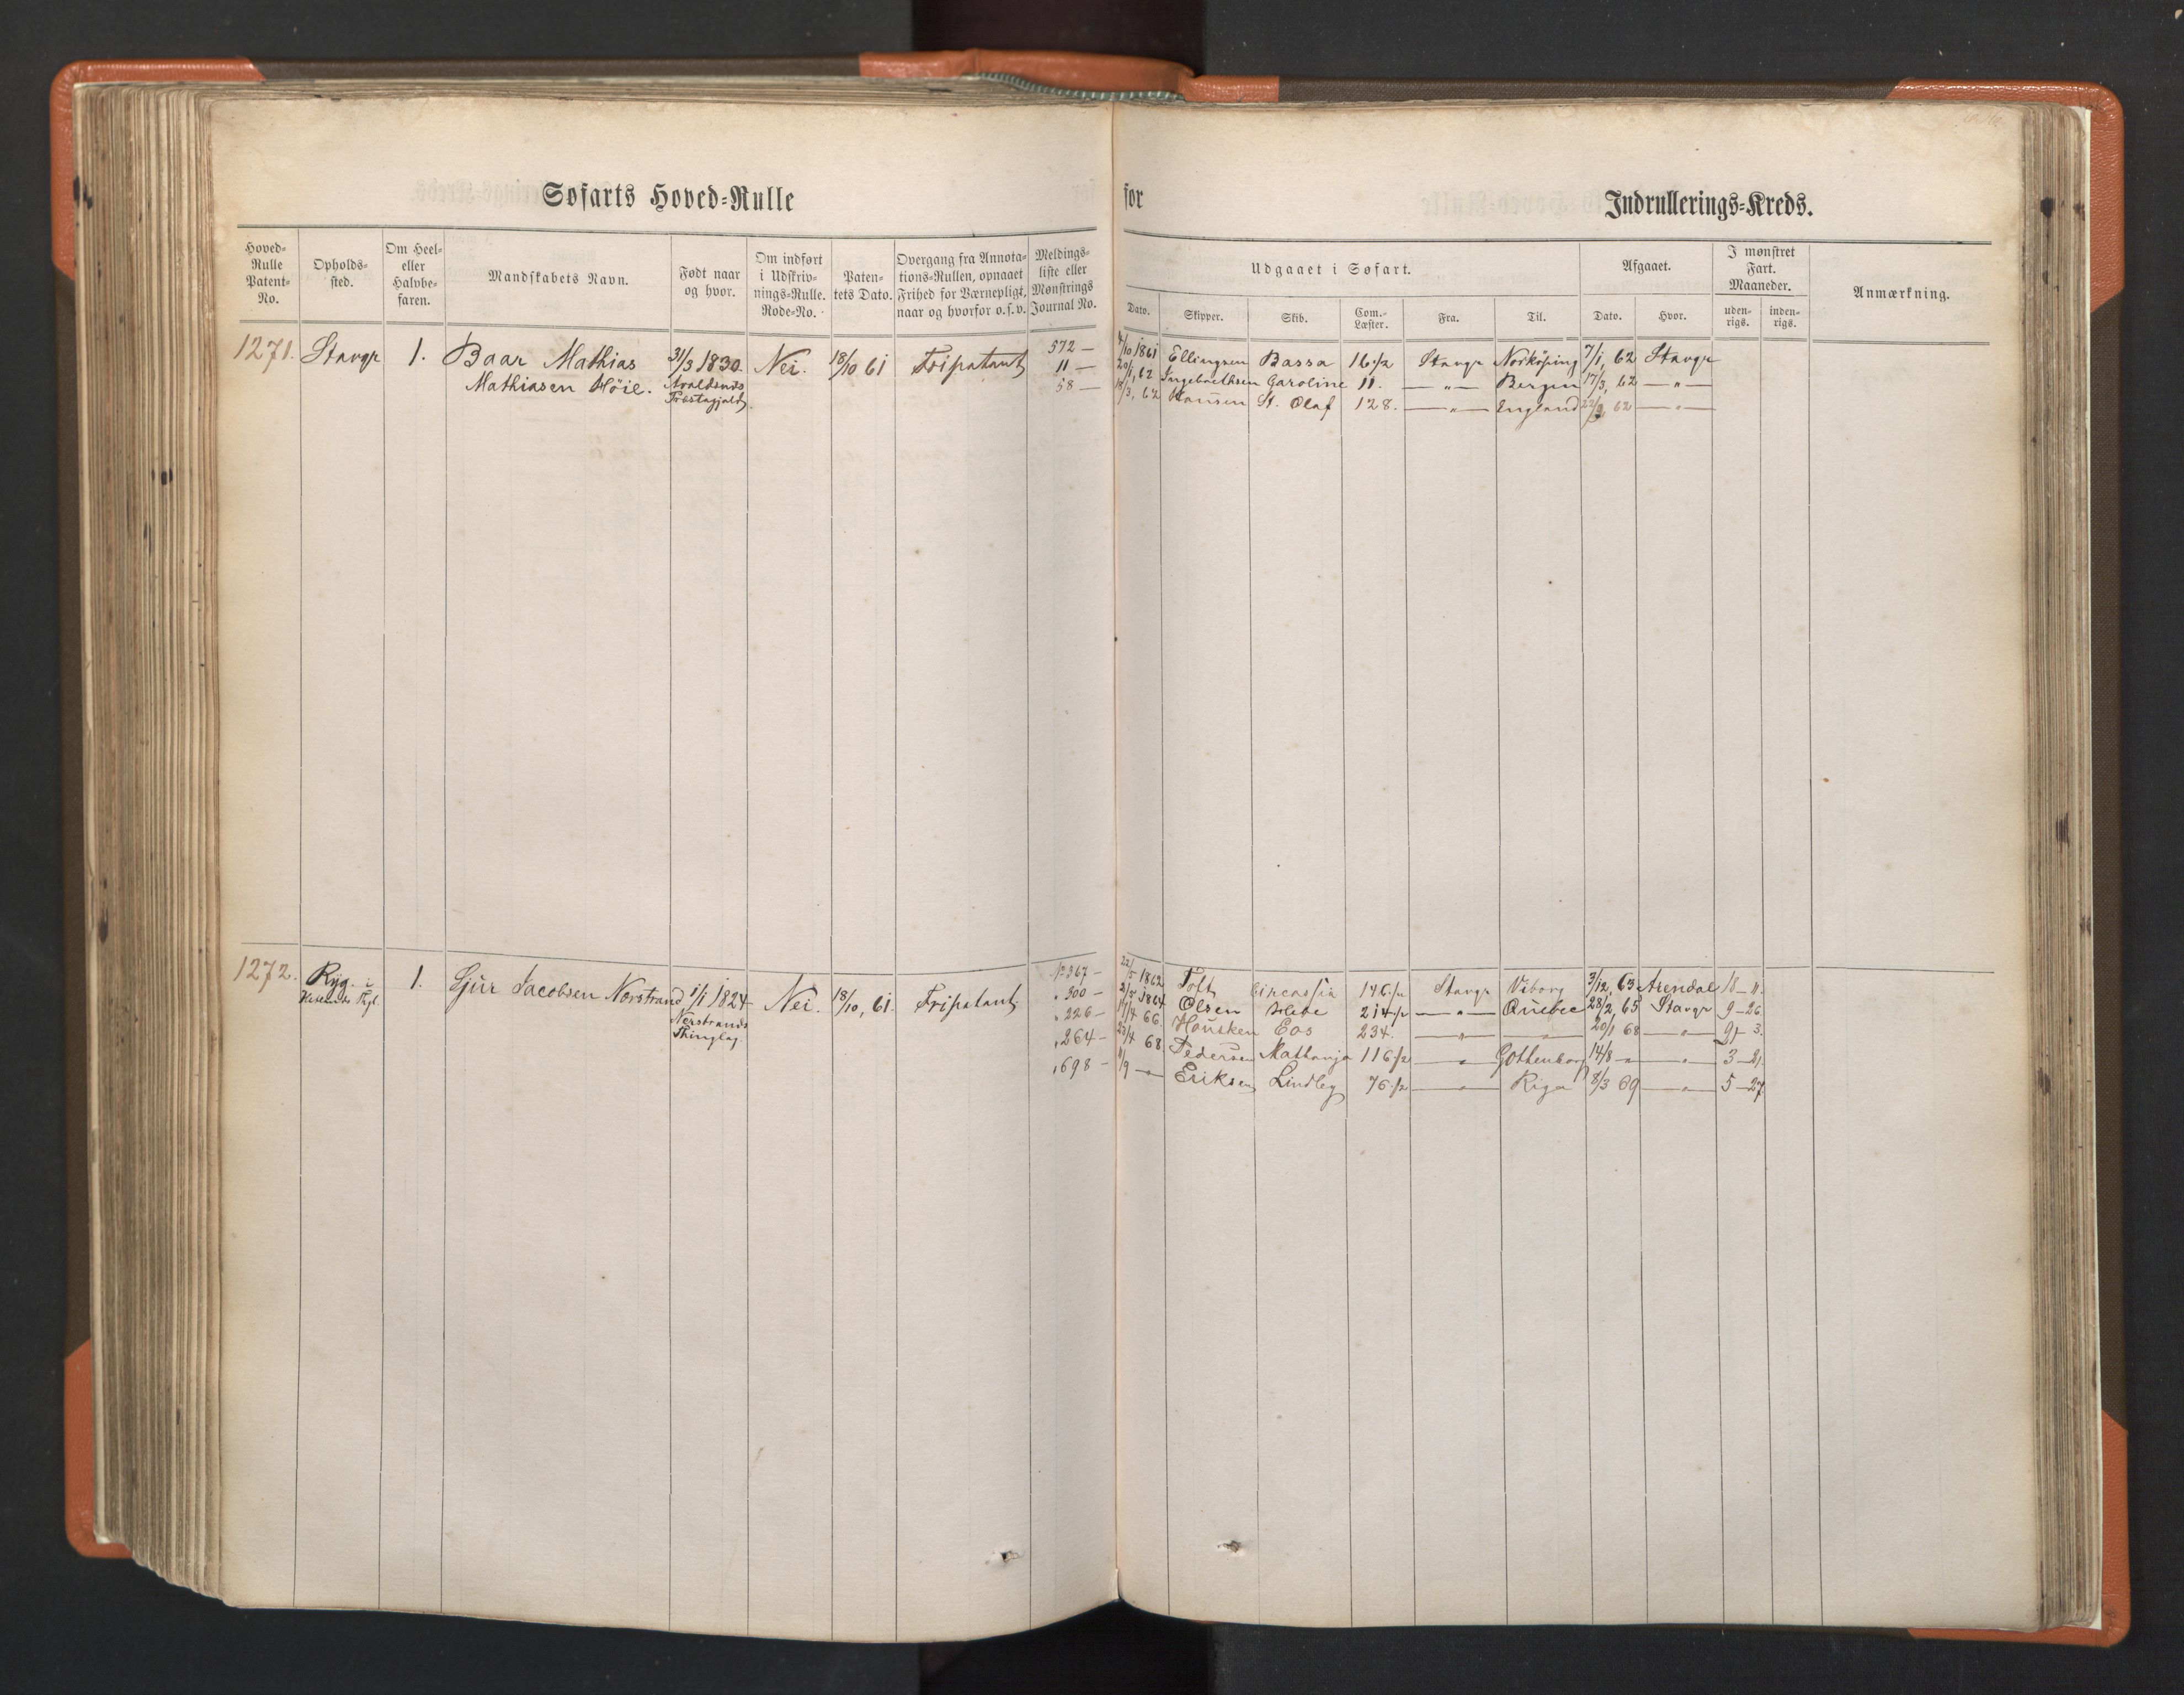 Søfarts Hoved-Rulle
for
Indrullerings-Kreds.
Hoved-Rulle Patent-No.
Opholds-sted.
Om Heel- eller Halvbe-faren.
Mandskabets Navn.
Født naar og hvor.
Om indført i Udskriv-nings-Rulle. Rode-No.
Paten-tets Dato.
Overgang fra Annota-tions-Rullen, opnaaet Frihed for Værnepligt, naar og hvorfor o.s.v.
Meldings-liste eller Mønstrings Journal No.
Udgaaet i Søfart.
Dato. Skipper. Skib. Com.-Læster. Fra. Til.
Afgaaet.
Dato. Hvor.
I mønstret Fart. Maaneder.
uden-rigs. inden-rigs.
Anmærkning.
1271. Stavgr 1. Baar Mathias 31/3 1830. Nei. 18/10 61 Fripatent 572 — 10 1861 Ellingsen Bassa 16 1/2 Stavgr Norköping 7/1, 62 Stavgr
Mathiasen Høie. Avaldsnds 11 — 20/1, 62 Ingebrethsen Caroline 11. — " — Bergen 17/3, 62 — " —
Præstegjeld. 58 — 18/3, 62 Hansen St. Olaf 128. — " — England 62 — " —
1272. Ryg. i 1. Sjur Jacobsen Norstrand 1/1 1824 Nei. 18/10, 61. Fripatent No 367 — 22/5 1862 Toft Circassia 146 1/2 Stavgr Viborg 3/12, 63 Arendal 18 — 11.
Thgl. Nerstrands " 300 — 2/5 1864 Olsen Hebe 214 1/2 — " — Quebec 28/2, 65 Stavgr 9 — 26
Thinglag. " 226 — 17/4 66. Housken Eos 234. — " — " 20/1 68 — " — 9 — 3.
" 264 — 23/4 68. Pedersen Nathanja 116 1/2 — " — Gothenborg 14/8 — " — " — 3 — 21.
" 698 — /9 — " — Eriksen Lindley 76 1/2 — " — Riga 8/3 69 — " — 5 — 27.